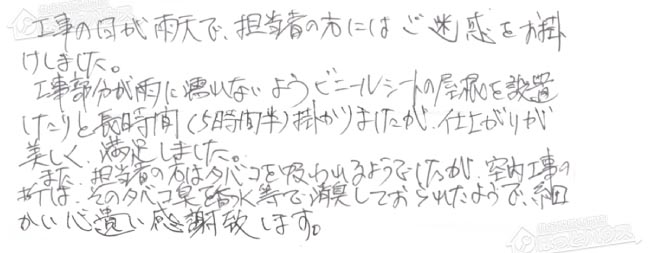 工事の日が雨天で、担当者の方にはご迷惑をお掛
けしました。
工事部分が雨に濡れないようビニールシートの屋根を設置
したりと長時間(5時間半)掛かりましたが、仕上がりが
美しく、満足しました。
また、担当者の方はタバコを吸われるようでしたが、室内工事の
折は、そのタバコ臭を香水等で消臭しておられたようで、細
かい心遣い感謝致します。